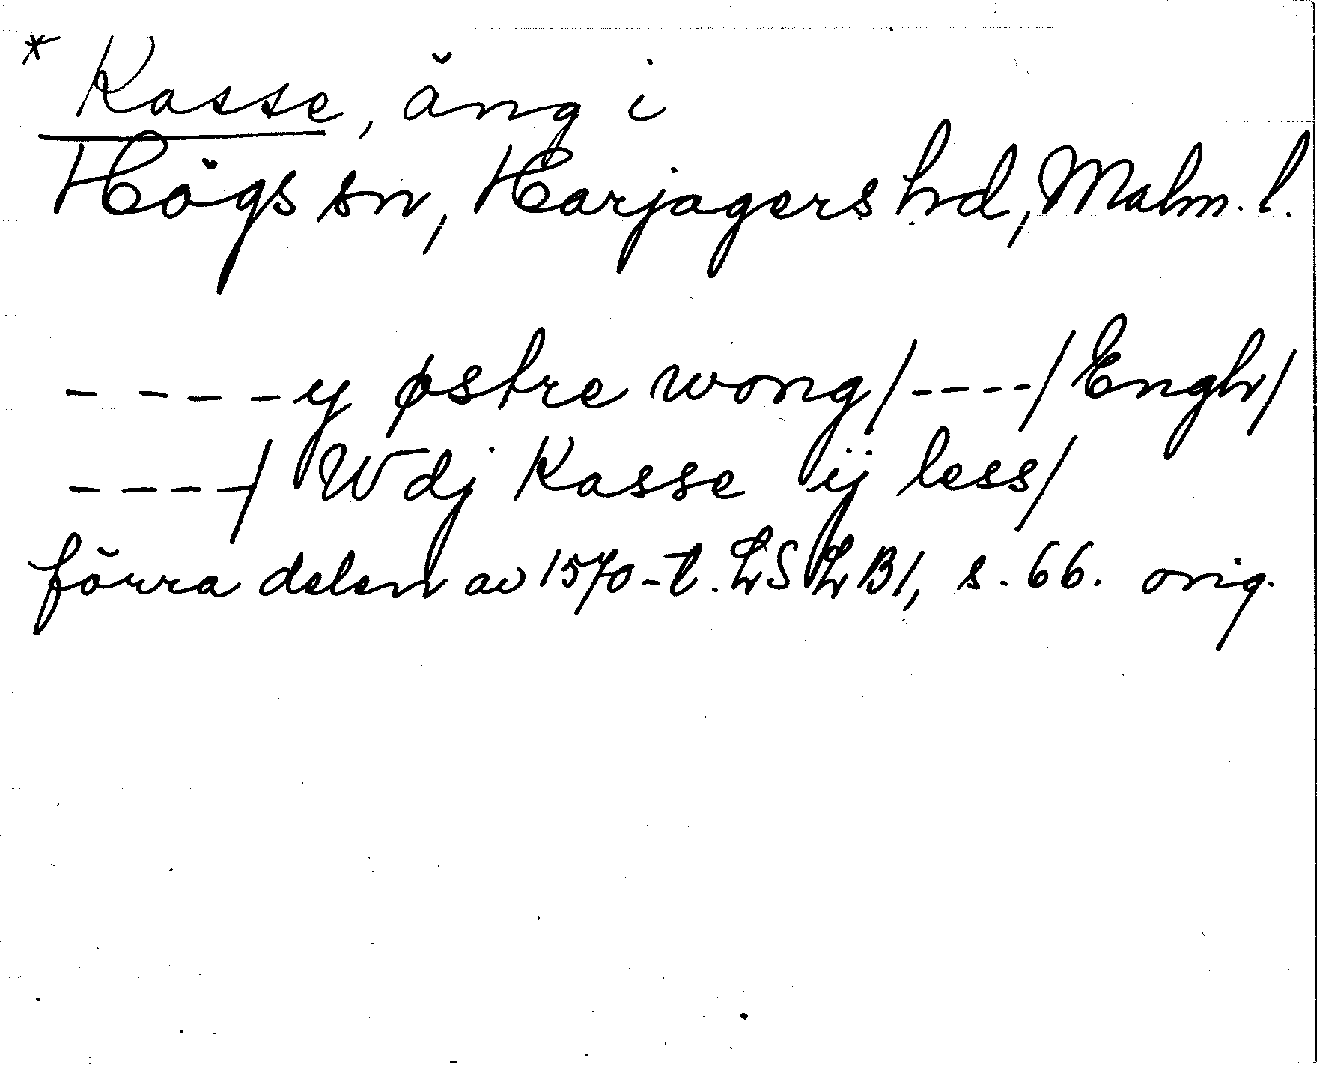 * Kasse, äng i
Högs sn, Harjagers hd, Malm. l.
- - - - y østre wong/ - - - - / Engh/
- - - - / Wdj Kasse ij less/
förra delen av 1570-t. LSLB1, s. 66. orig.